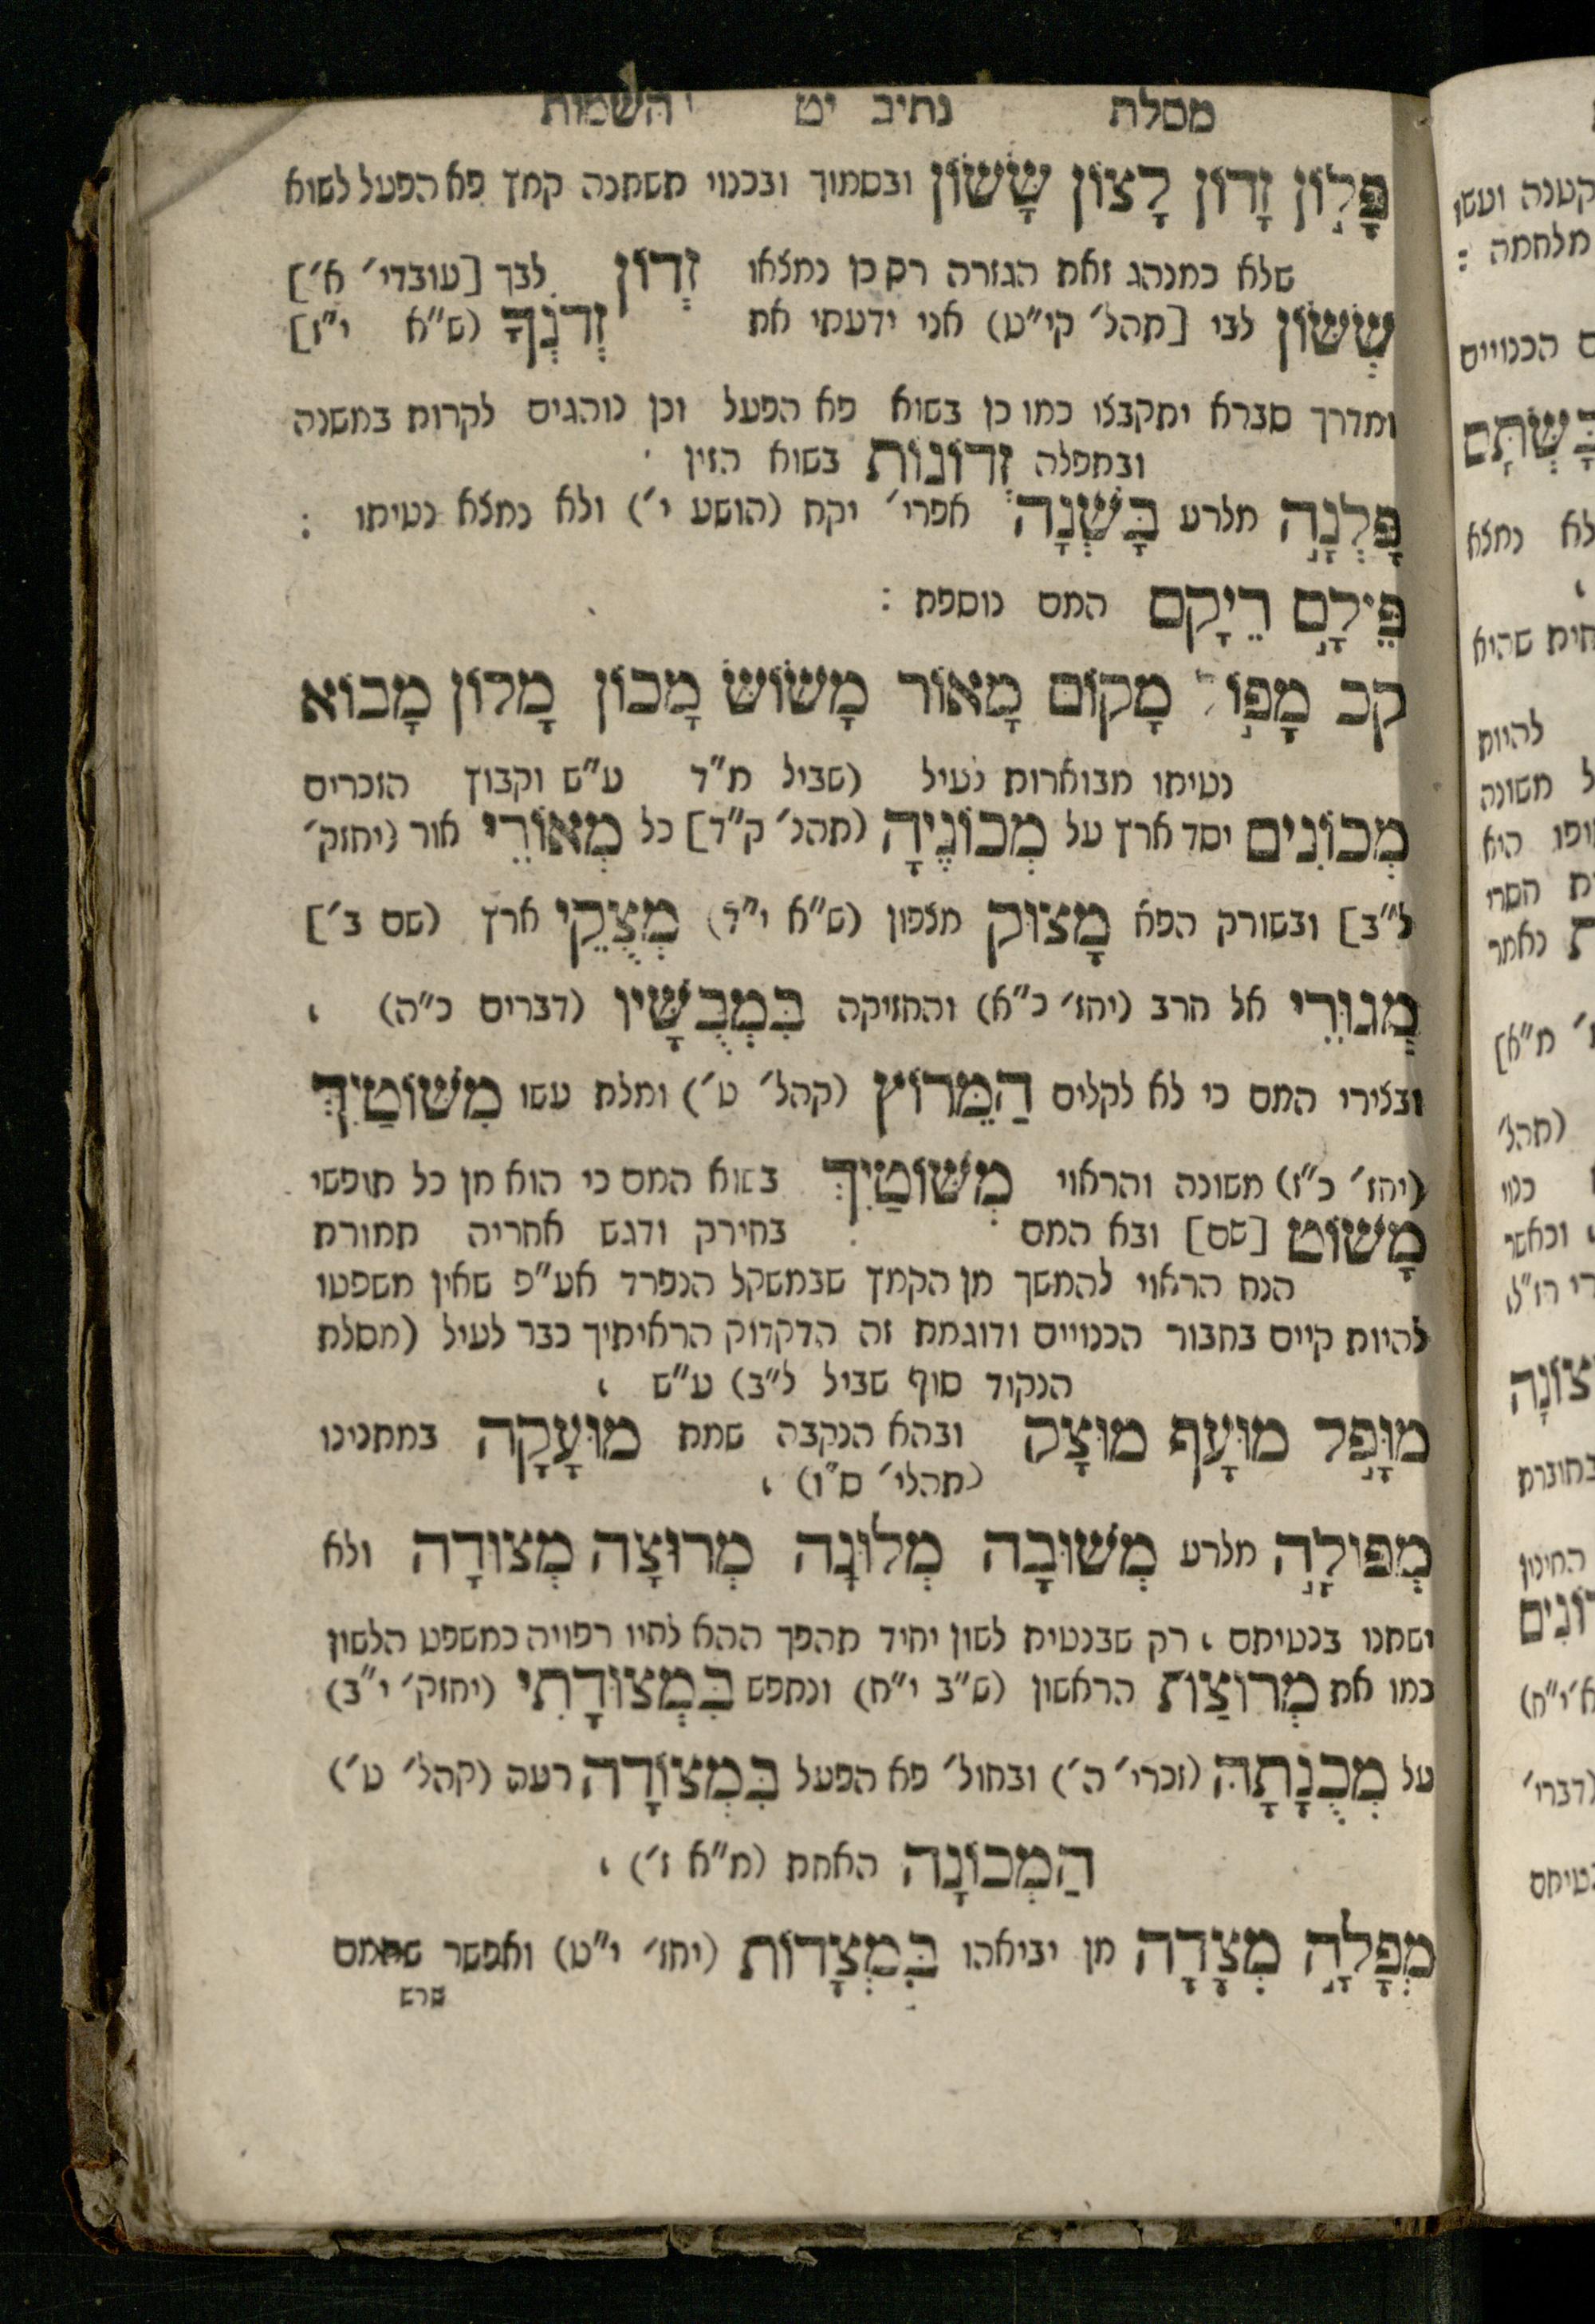 מסלת נתיב יט השמות
פָּלוֹן זָדוֹן לָצוֹן שָׂשׂוֹן ובסמוך ובכנוי תשתנה קמץ פא הפעל לשוא
שלא כמנהג זאת הגזרה רק כן נמצאו זְדוֹן לבך [עובדי׳ א׳]
שְׂשׂוֹן לבי [תהל׳ קי״ט) אני ידעתי את זְדֹנְךָ (ש״א י״ז]
ומדרך סברא יתקבצו כמו כן בשוא פא הפעל וכן נוהגים לקרות במשנה
ובתפלה זְדוֹנוֹת בשוא הזין
פָּלְנָה מלרע בָּשְׁנָה אפרי׳ יקח (הושע י׳) ולא נמצא נטיתו :
פֵּילָם רֵיקָם המם נוספת :
קב מָפוֹל מָקוֹם מָאוֹר מָשׂוֹשׂ מָכוֹן מָלוֹן מָבוֹא
נטיתו מבוארות לעיל (שביל מ״ד ע״ש וקבוץ הזכרים
מְכוֹנִים יסד ארץ על מְכוֹנֶיהָ (תהל׳ ק״ד] כל מְאוֹרֵי אור (יחזק׳
ל״ב] ובשורק הפא מָצוּק מצפון (ש״א י״ד) מְצֻקֵי ארץ (שם ב׳]
מְגוּרֵי אל חרב (יחז׳ כ״א) והחזיקה בִּמְבֻשָׁיו (דברים כ״ה) ,
ובצירי המם כי לא לקלים הַמֵּרוֹץ (קהל׳ ט׳) ומלת עשו מִשּׁוֹטַיִךְ
(יחז׳ כ״ז) משונה והראוי מְשׁוֹטַיִךְ בשוא המם כי הוא מן כל תופשי
מָשׁוֹט [שם] ובא המם בחירק ודגש אחריה תמורת
הנח הראוי להמשך מן הקמץ שבמשקל הנפרד אע״פ שאין משפטו
להיות קיים בחבור הכנויים ודוגמת זה הדקדוק הראיתיך כבר לעיל (מסלת
הנקוד סוף שביל ל״ב) ע״ש ,
מוּפָל מוּעָף מוּצָק ובהא הנקבה שמת מוּעָקָה במתנינו
(תהלי׳ ס״ו) ,
מְפוּלָה מלרע מְשׁוּבָה מְלוּנָה מְרוּצָה מְצוּדָה ולא
ישתנו בנטיתם , רק שבנטית לשון יחיד תהפך ההא לתיו רפויה כמשפט הלשון
כמו את מְרוּצַת הראשון (ש״ב י״ח) ונתפש בִּמְצוּדָתִי (יחזק׳ י״ב)
על מְכֻנָתָהּ (זכרי׳ ה׳) ובחול׳ פא הפעל בִּמְצוֹדָה רעה (קהל׳ ט׳)
הַמְכוֹנָה האחת (מ״א ז׳) ,
מְפָּלָה מְצָדָה מן יביאהו בַּמְּצָדוֹת (יחז׳ י״ט) ואפשר שהמם
שרש